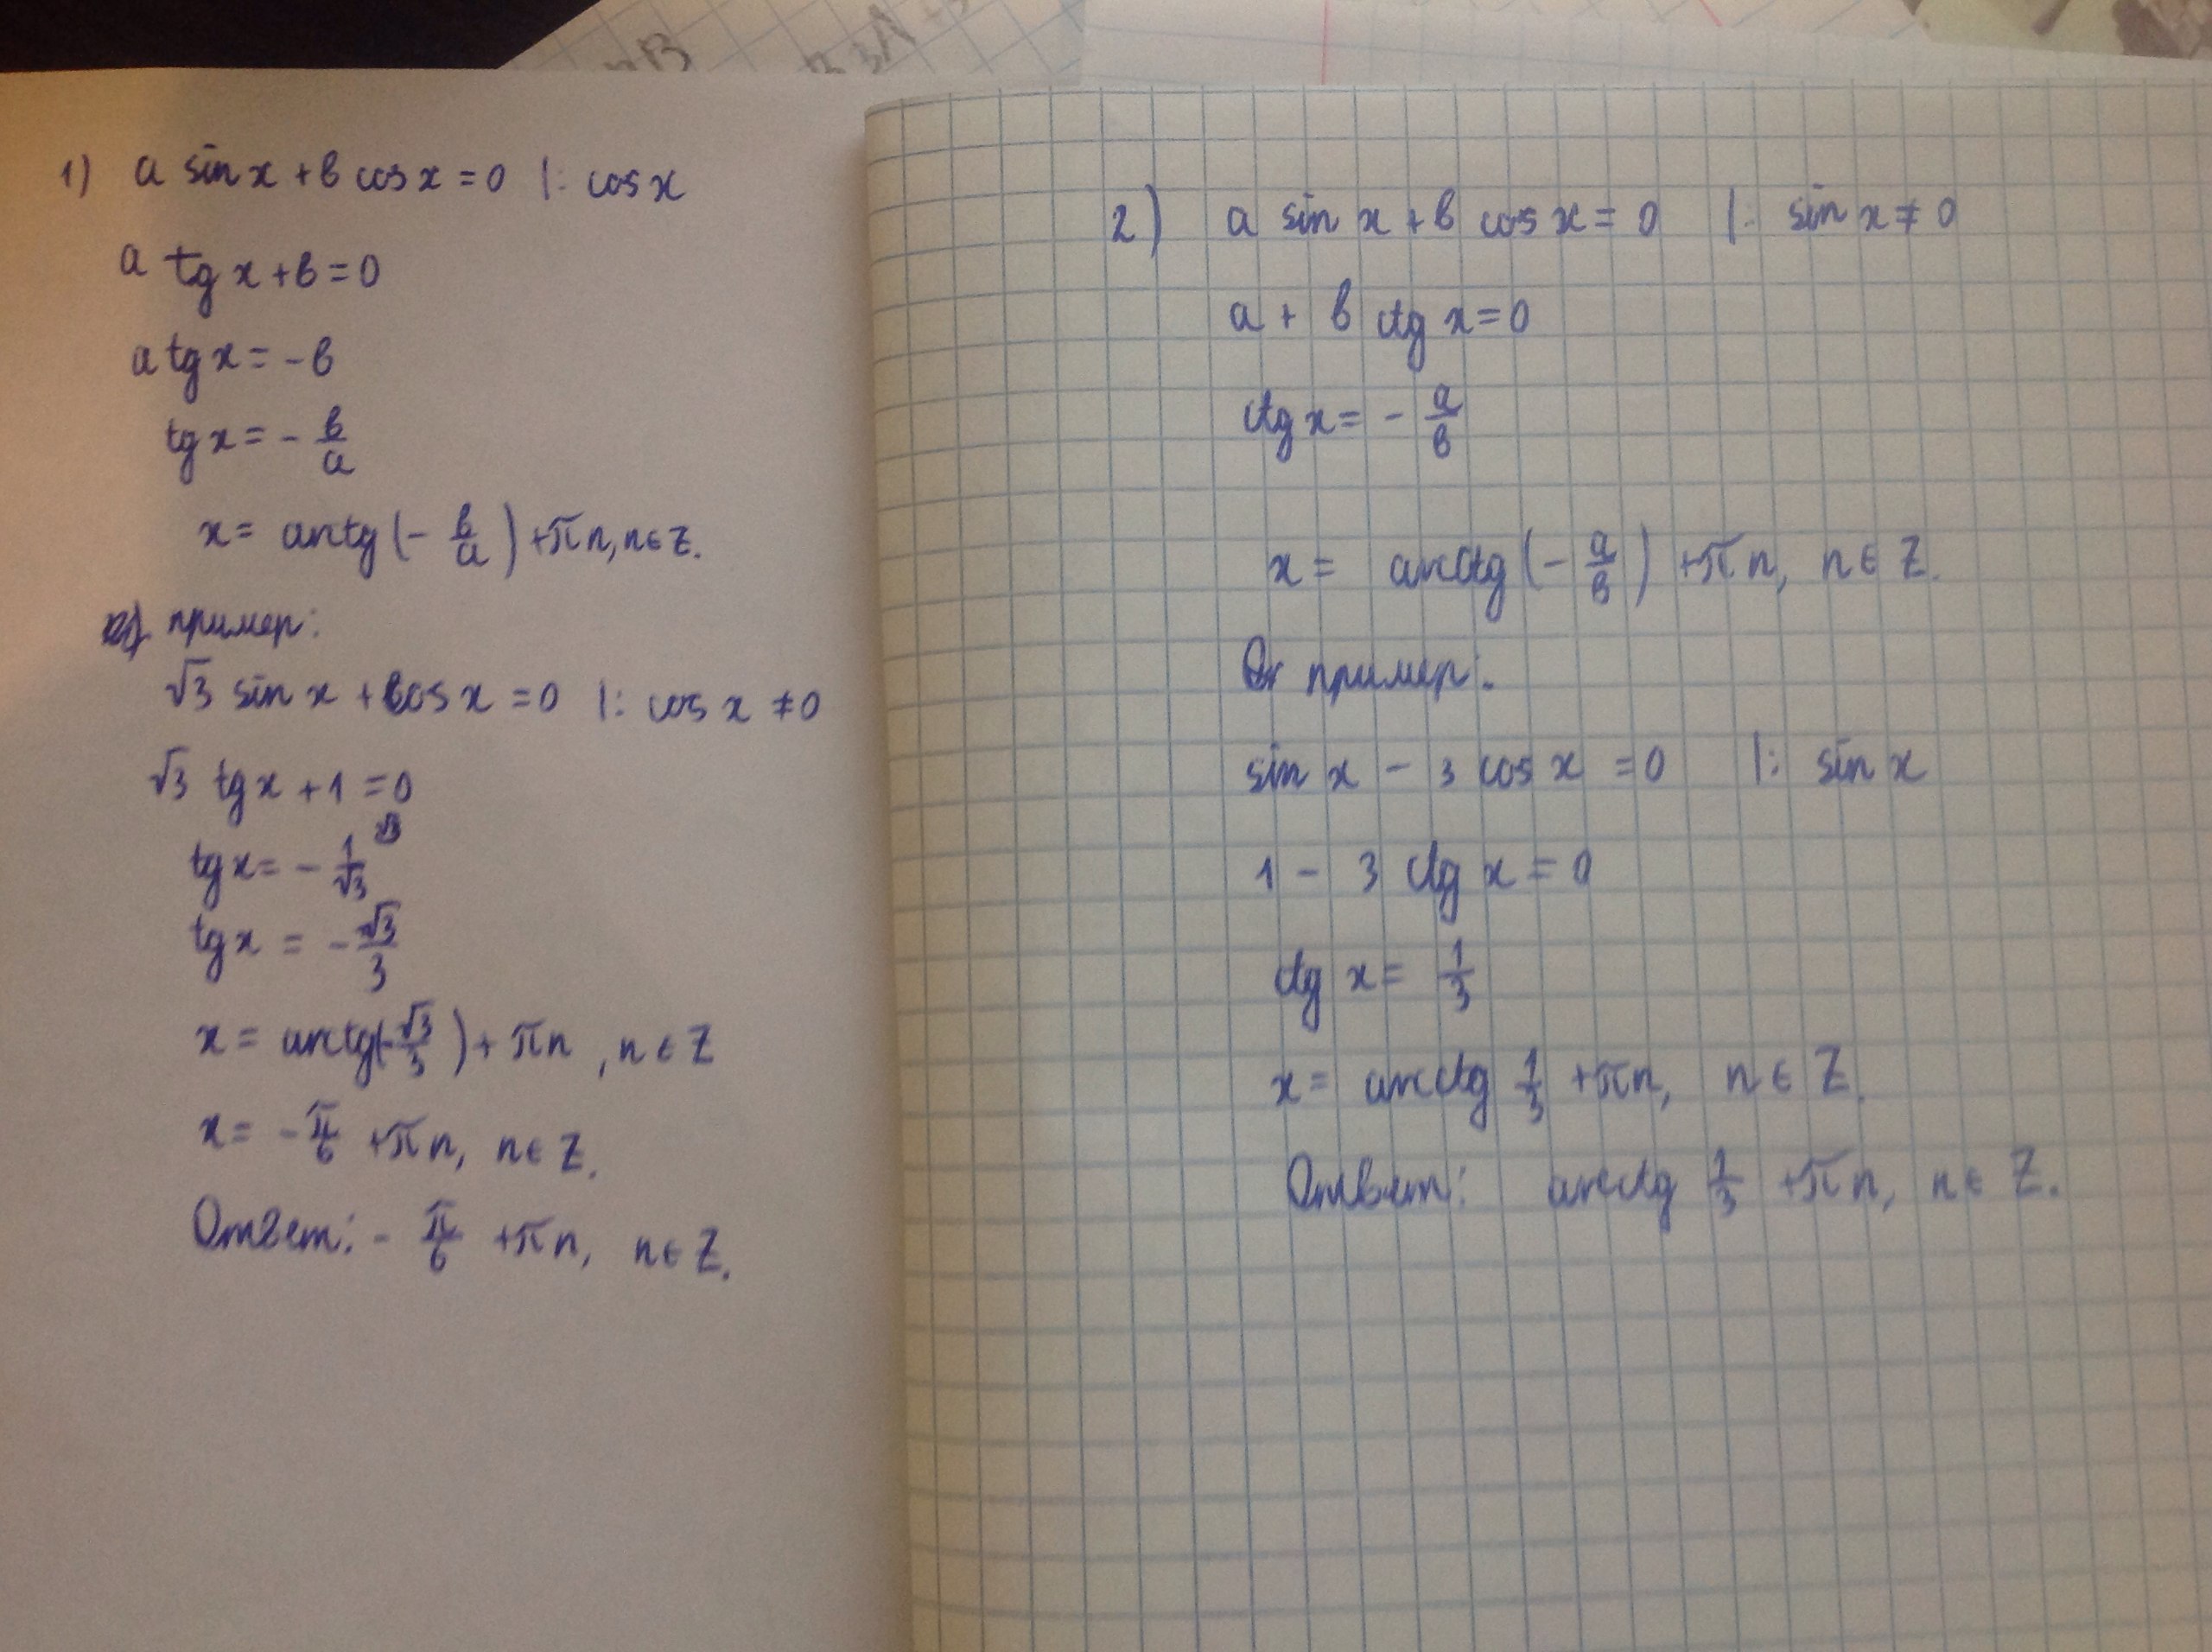 1) a sin x + b cos x = 0 |: cos x
a tg x + b = 0
a tg x = - b
tg x = - b/a
x = arctg (- b/a) + πn, n ∈ Z.
пример:
√3 sin x + cos x = 0 |: cos x ≠ 0
√3 tg x + 1 = 0
tg x = - 1/√3
tg x = - √3/3
x = arctg(-√3/3) + πn, n ∈ Z
x = - π/6 + πn, n ∈ Z.
Ответ: - π/6 + πn, n ∈ Z.
2) a sin x + b cos x = 0 |: sin x ≠ 0
a + b ctg x = 0
ctg x = - a/b
x = arcctg (- a/b) + πn, n ∈ Z.
пример:
sin x - 3 cos x = 0 |: sin x
1 - 3 ctg x = 0
ctg x = 1/3
x = arcctg 1/3 + πn, n ∈ Z.
Ответ: arcctg 1/3 + πn, n ∈ Z.